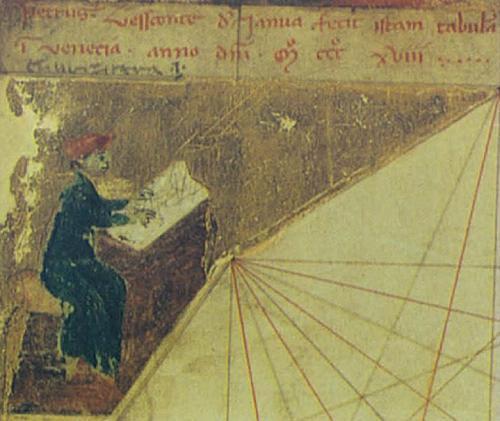 Petrus Vessconte d' Janua fecit istam tabulã
ĩ Venecia. anno dñi. m̊ ccc̊ xviii .....